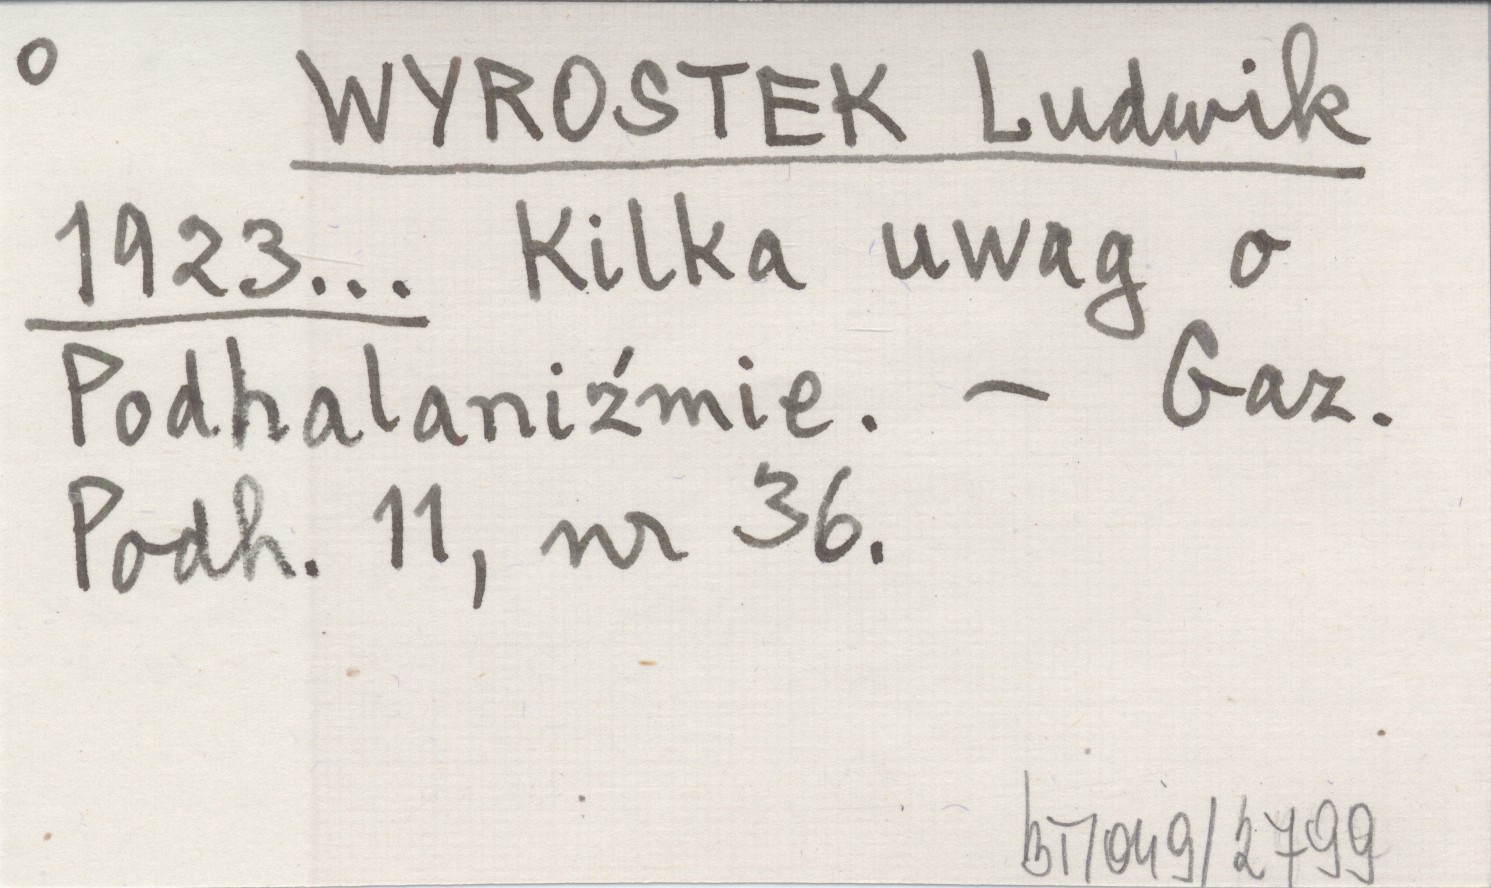 o WYROSTEK Ludwik
1923... Kilka uwag o
Podhalaniźmie. – Gaz.
Podh. 11, nr 36.
BT/049/2799